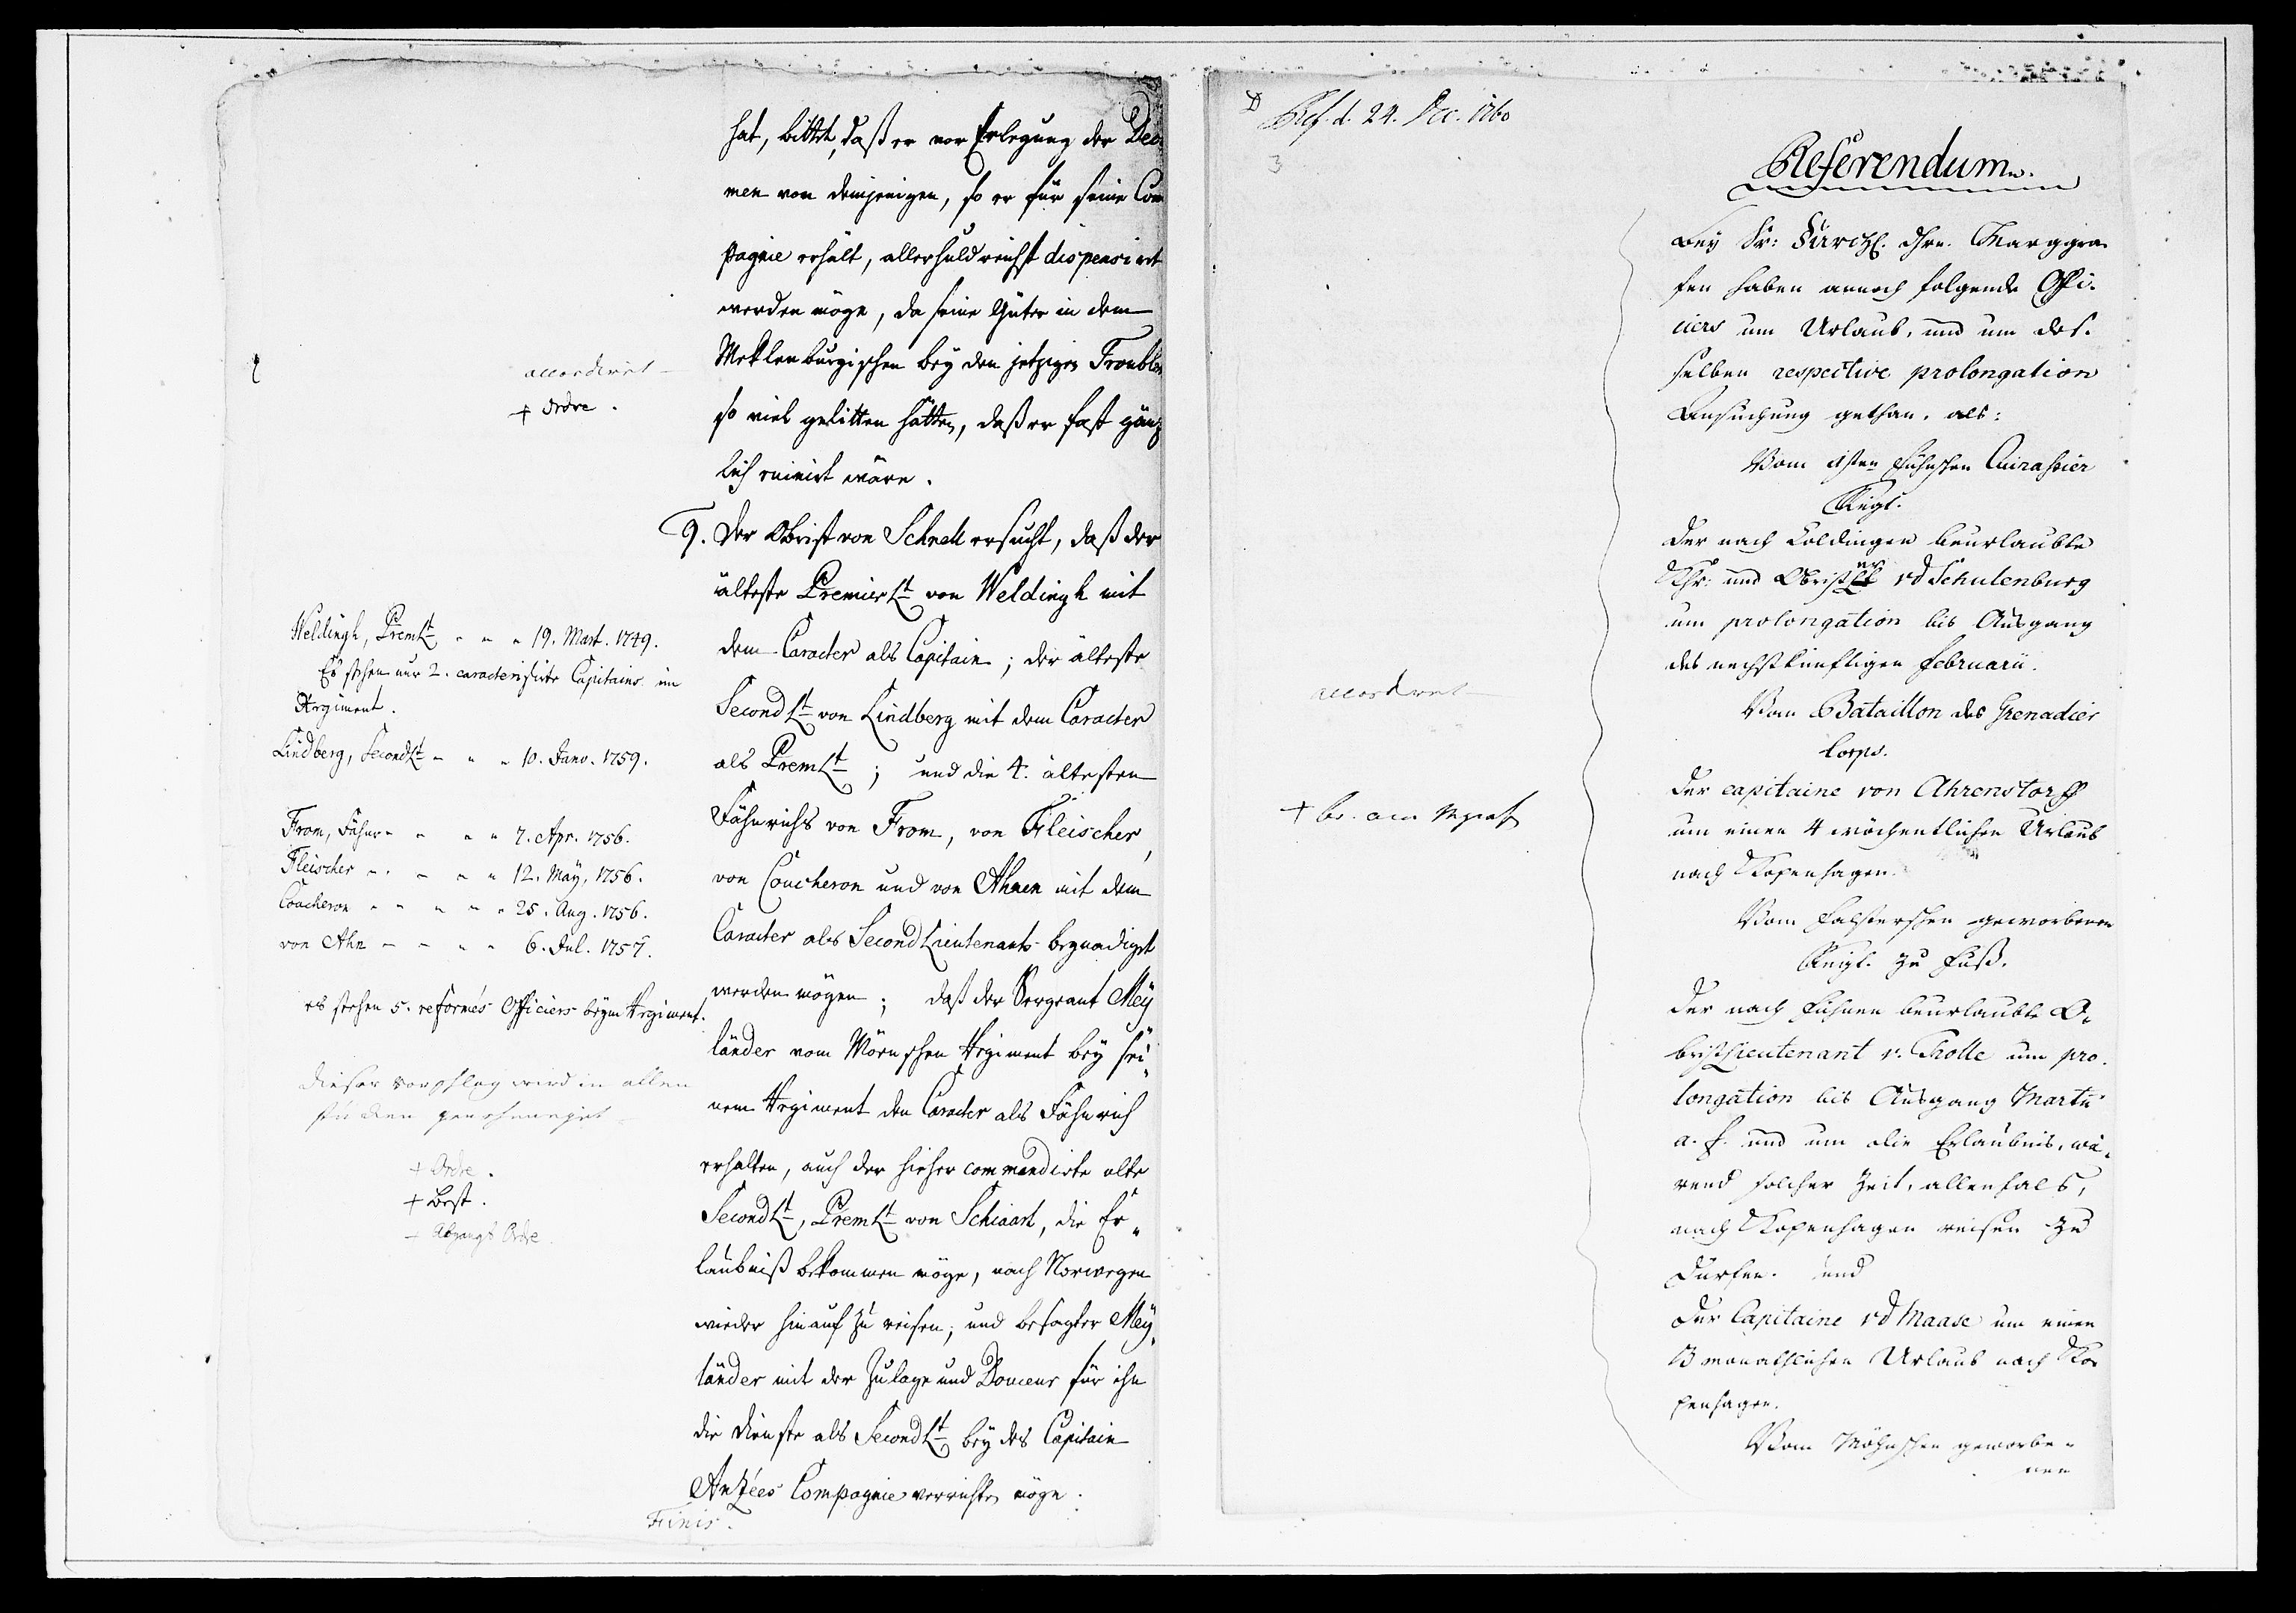 hat, bittet, daß er von Erlegung der Deci
men von demjenigen, so er für seine Com
pagnie erhält, allerhuldreichst dispensiret
werden möge, da seine Güter in dem
Meklenburgischen bey den jetzigen Troublen
so viel gelitten hätten, daß er fast gänz
lich ruinirt wäre.
accordiret
+ Ordre.
9. Der Obrist von Schnell ersucht, daß der
älteste Premier Lt von Weldingh mit
dem Caracter als Capitain; der älteste
Second Lt von Lindberg mit dem Caracter
als Prem Lt; und die 4. ältesten
Fähnrichs von From, von Fleischer,
von Coucheron und von Ahnen mit dem
Caracter als Second Lieutenants begnadiget
werden mögen; daß der Sergeant Mey
länder vom Mörnschen Regiment bey sei„
nem Regiment den Caracter als Fähnrich
erhalten, auch der hieher commandirte alte
Second Lt, Prem Lt von Schiaart, die Er„
laubniß bekommen möge, nach Norwegen
wieder hinauf zu reisen, und besagter Mey„
länder mit der Zulage und Douceur für ihn
die Dienste als Second Lt bey des Capitain
Anzées Compagnie verrichten möge.
Finis.
Weldingh, Prem Lt - - - 19. Mart. 1749.
Es stehen nur 2. caracterisirte Capitains im
Regiment.
Lindberg, Second Lt - - - 10. Janv. 1759.
From, Fähnr - - - - 7. Apr. 1756.
Fleischer - - - - - 12. May, 1756.
Coucheron - - - - - 25. Aug. 1756.
von Ahn - - - - 6. Jul. 1757.
es stehen 5. reformés Officiers beym Regiment.
dieser vorschlag wird in allen
stücken genehmiget
+ Ordre.
+ Best.
- Abgangs Ordre.
Ref. d. 24. Dec. 1760
3
Referendum.
Bey Sr: Fürstl. Dhrn. Marggra
fen haben annoch folgende Offi-
ciers um Urlaub, und um des-
selben respective prolongation
Ansuchung gethan, als:
Vom 1sten Fühnschen Cuirassier
Regt.
der nach Coldingen beurlaubte
Khr: und Obrister vd Schulenburg
um prolongation bis Ausgang
des nechstkünftigen Februarii.
Vom Bataillon des Grenadier
Corps.
der capitaine von Ahrenstorff
um einen 4 wöchentlichen Urlaub
nach Kopenhagen.
Vom Falsterschen geworbenen
Regt. zu Fuß.
der nach Fühnen beurlaubte O„
bristlieutenant v: Trolle um pro-
longation bis Ausgang Martii
a. f. und um die Erlaubnis, wä„
rend solcher Zeit, allenfals,
nach Kopenhagen reisen zu
dürfen. und
der Capitaine vd Maase um einen
3 monathlichen Urlaub nach Ko-
penhagen.
Vom Möhnschen geworbe-
nen
accordiret
+ br. an Mgraf